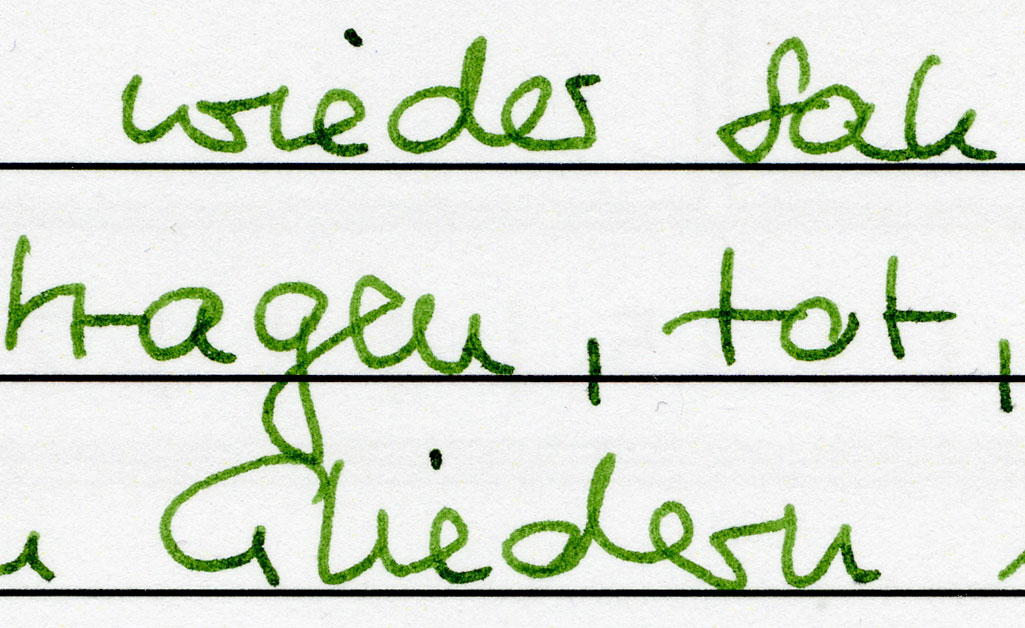 wieder sah
tragen, tot,
Gliedern